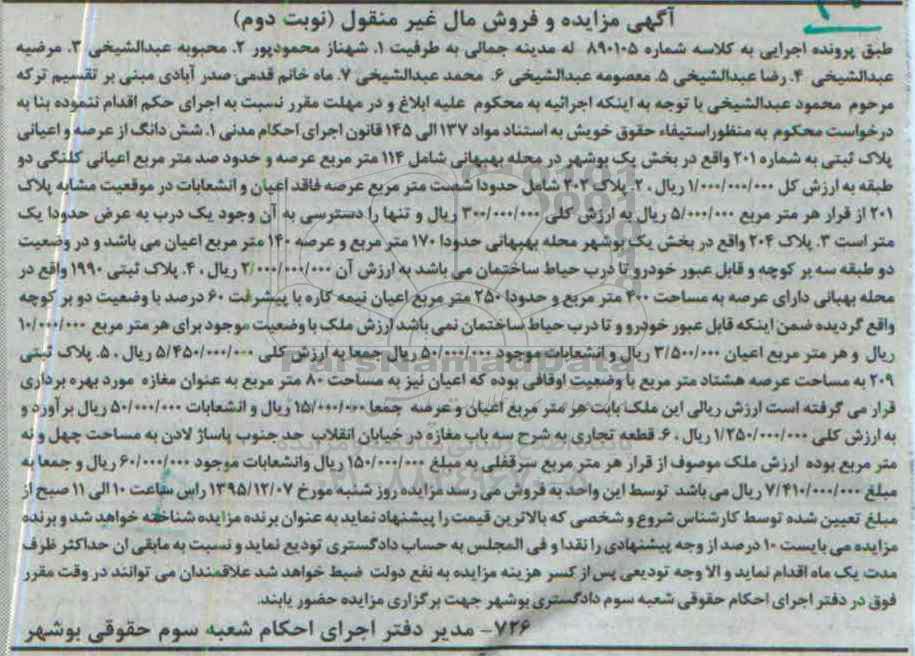 آگهی مزایده و فروش مال غیر منقول (نوبت دوم)
طبق پرونده اجرایی به کلاسه شماره ۸۹۰۱۰۵ له مدینه جمالی به طرفیت ۱. شهناز محمودپور ۲. محبوبه عبدالشیخی ۳. مرضیه
عبدالشیخی ۴. رضا عبدالشیخی ۵. معصومه عبدالشیخی ۶. محمد عبدالشیخی ۷. ماه خانم قدمی صدر آبادی مبنی بر تقسیم ترکه
مرحوم محمود عبدالشیخی با توجه به اینکه اجرائیه به محکوم علیه ابلاغ و در مهلت مقرر نسبت به اجرای حکم اقدام ننموده بنا به
درخواست محکوم به منظور استیفاء حقوق خویش به استناد مواد ۱۳۷ الی ۱۴۵ قانون اجرای احکام مدنی ۱. شش دانگ از عرصه و اعیانی
پلاک ثبتی به شماره ۲۰۱ واقع در بخش یک بوشهر در محله بهبهانی شامل ۱۱۴ متر مربع عرصه و حدود صد متر مربع اعیانی کلنگی دو
طبقه به ارزش کل ۱/۰۰۰/۰۰۰/۰۰۰ ریال ، ۲. پلاک ۲۰۲ شامل حدودا شصت متر مربع عرصه فاقد اعیان و انشعابات در موقعیت مشابه پلاک
۲۰۱ از قرار هر متر مربع ۵/۰۰۰/۰۰۰ ریال به ارزش کلی ۳۰۰/۰۰۰/۰۰۰ ریال و تنها راه دسترسی به آن وجود یک درب به عرض حدودا یک
متر است ۳. پلاک ۲۰۴ واقع در بخش یک بوشهر محله بهبهانی حدودا ۱۷۰ متر مربع و عرصه ۱۴۰ متر مربع اعیان می باشد و در وضعیت
دو طبقه سه بر کوچه و قابل عبور خودرو تا درب حیاط ساختمان می باشد به ارزش آن ۲/۰۰۰/۰۰۰/۰۰۰ ریال ، ۴. پلاک ثبتی ۱۹۹۰ واقع در
محله بهبانی دارای عرصه به مساحت ۴۰۰ متر مربع و حدودا ۲۵۰ متر مربع اعیان نیمه کاره با پیشرفت ۶۰ درصد با وضعیت دو بر کوچه
واقع گردیده ضمن اینکه قابل عبور خودرو و تا درب حیاط ساختمان نمی باشد ارزش ملک با وضعیت موجود برای هر متر مربع ۱۰/۰۰۰/۰۰۰
ریال و هر متر مربع اعیان ۳/۵۰۰/۰۰۰ ریال و انشعابات موجود ۵۰/۰۰۰/۰۰۰ ریال جمعا به ارزش کلی ۵/۴۵۰/۰۰۰/۰۰۰ ریال ، ۵. پلاک ثبتی
۲۰۹ به مساحت عرصه هشتاد متر مربع با وضعیت اوقافی بوده که اعیان نیز به مساحت ۸۰ متر مربع به عنوان مغازه مورد بهره برداری
قرار می گرفته است ارزش ریالی این ملک بابت هر متر مربع اعیان و عرصه جمعا ۱۵/۰۰۰/۰۰۰ ریال و انشعابات ۵۰/۰۰۰/۰۰۰ ریال بر آورد و
به ارزش کلی ۱/۲۵۰/۰۰۰/۰۰۰ ریال ، ۶. قطعه تجاری به شرح سه باب مغازه در خیابان انقلاب حد جنوب پاساژ لادن به مساحت چهل و نه
متر مربع بوده ارزش ملک موصوف از قرار هر متر مربع سرقفلی به مبلغ ۱۵۰/۰۰۰/۰۰۰ ریال وانشعابات موجود ۶۰/۰۰۰/۰۰۰ ریال و جمعا به
مبلغ ۷/۴۱۰/۰۰۰/۰۰۰ ریال می باشد توسط این واحد به فروش می رسد مزایده روز شنبه مورخ ۱۳۹۵/۱۲/۰۷ راس ساعت ۱۰ الی ۱۱ صبح از
مبلغ تعیین شده توسط کارشناس شروع و شخصی که بالاترین قیمت را پیشنهاد نماید به عنوان برنده مزایده شناخته خواهد شد و برنده
مزایده می بایست ۱۰ درصد از وجه پیشنهادی را نقدا و فی المجلس به حساب دادگستری تودیع نماید و نسبت به مابقی ان حداکثر ظرف
مدت یک ماه اقدام نماید و الا وجه تودیعی پس از کسر هزینه مزایده به نفع دولت ضبط خواهد شد علاقمندان می توانند در وقت مقرر
فوق در دفتر اجرای احکام حقوقی شعبه سوم دادگستری بوشهر جهت برگزاری مزایده حضور یابند.
۷۲۶- مدیر دفتر اجرای احکام شعبه سوم حقوقی بوشهر
ParsNamadData